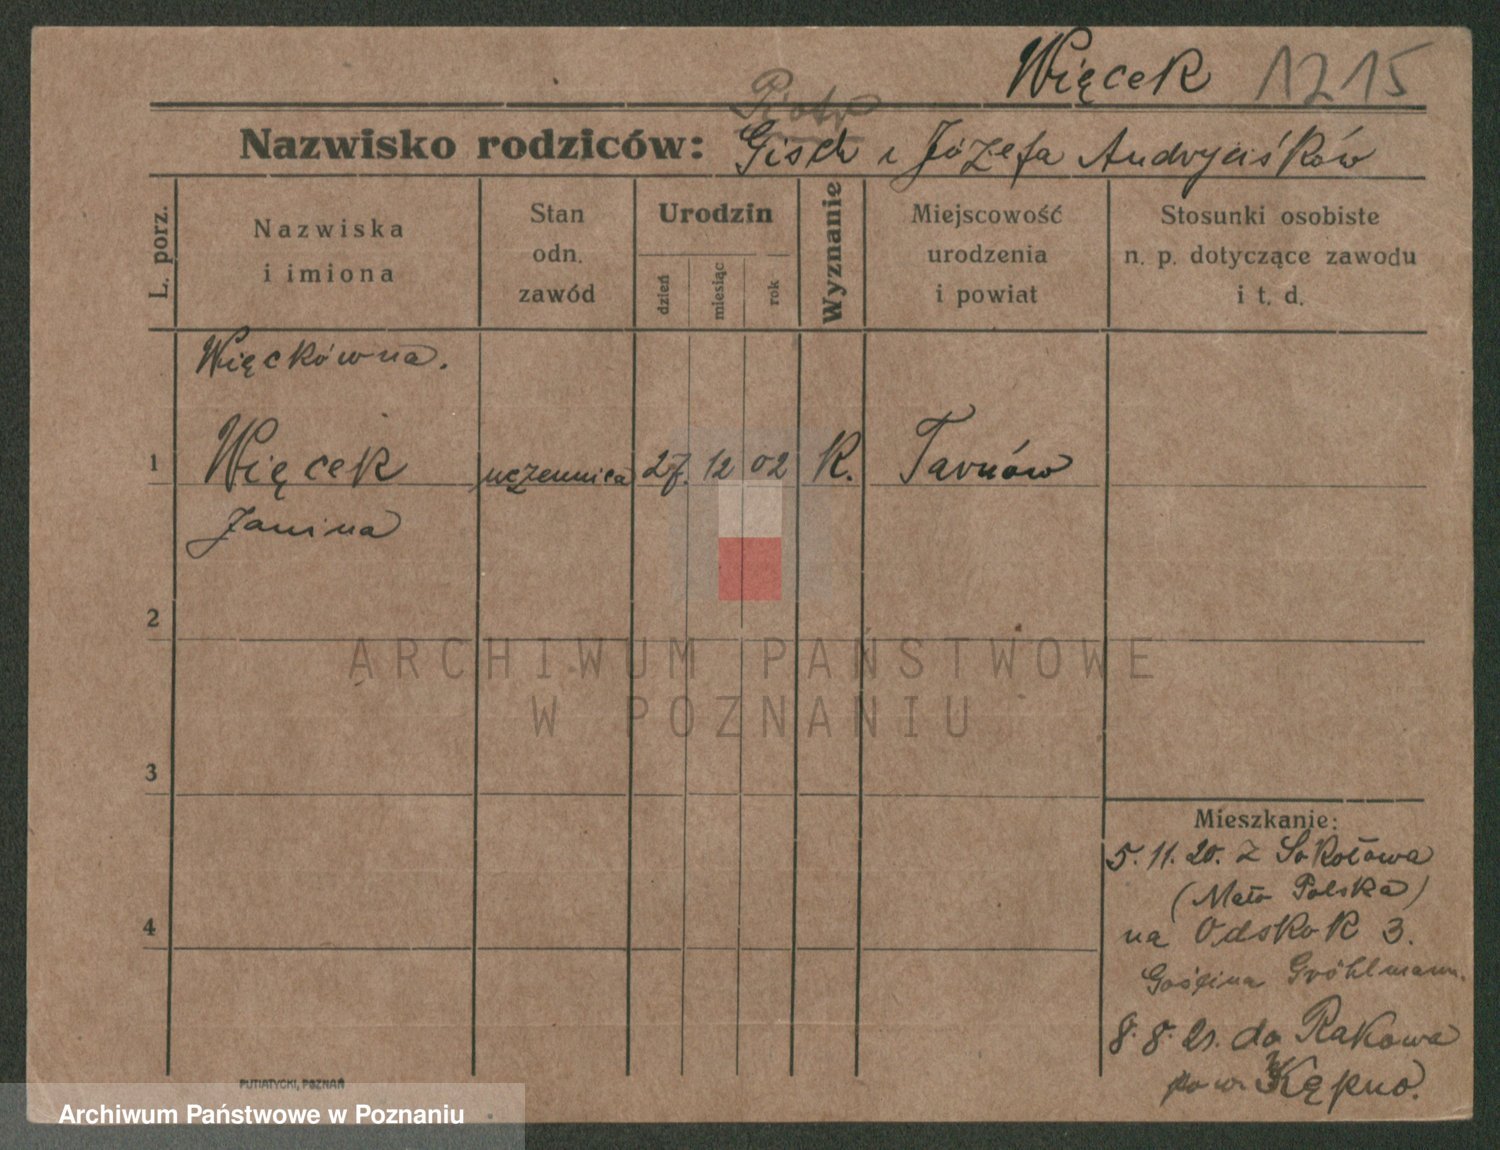 Więcek 1215
Piotr
Nazwisko rodziców: Gisch i Józefa Andryjśków
L. porz.
Nazwiska
i imiona
Stan
odn.
zawód
Urodzin
dzień
miesiąc
rok
Wyznanie
Miejscowość
urodzenia
i powiat
Stosunki osobiste
n. p. dotyczące zawodu
i t. d.
Więckówna.
1 Więcek uczennica 27. 12 02 K. Tarnów
Janina
2
ARCHIWUM PAŃSTWOWE
W POZNANIU
3
Mieszkanie:
5. 11. 20. z Sokołowa
(Mało Polska)
na Odskok 3.
4
Gröhlmann.
8. 8. 21. do Rakowa
pow. Kępno.
PUTIATYCKI, POZNAŃ
Archiwum Państwowe w Poznaniu